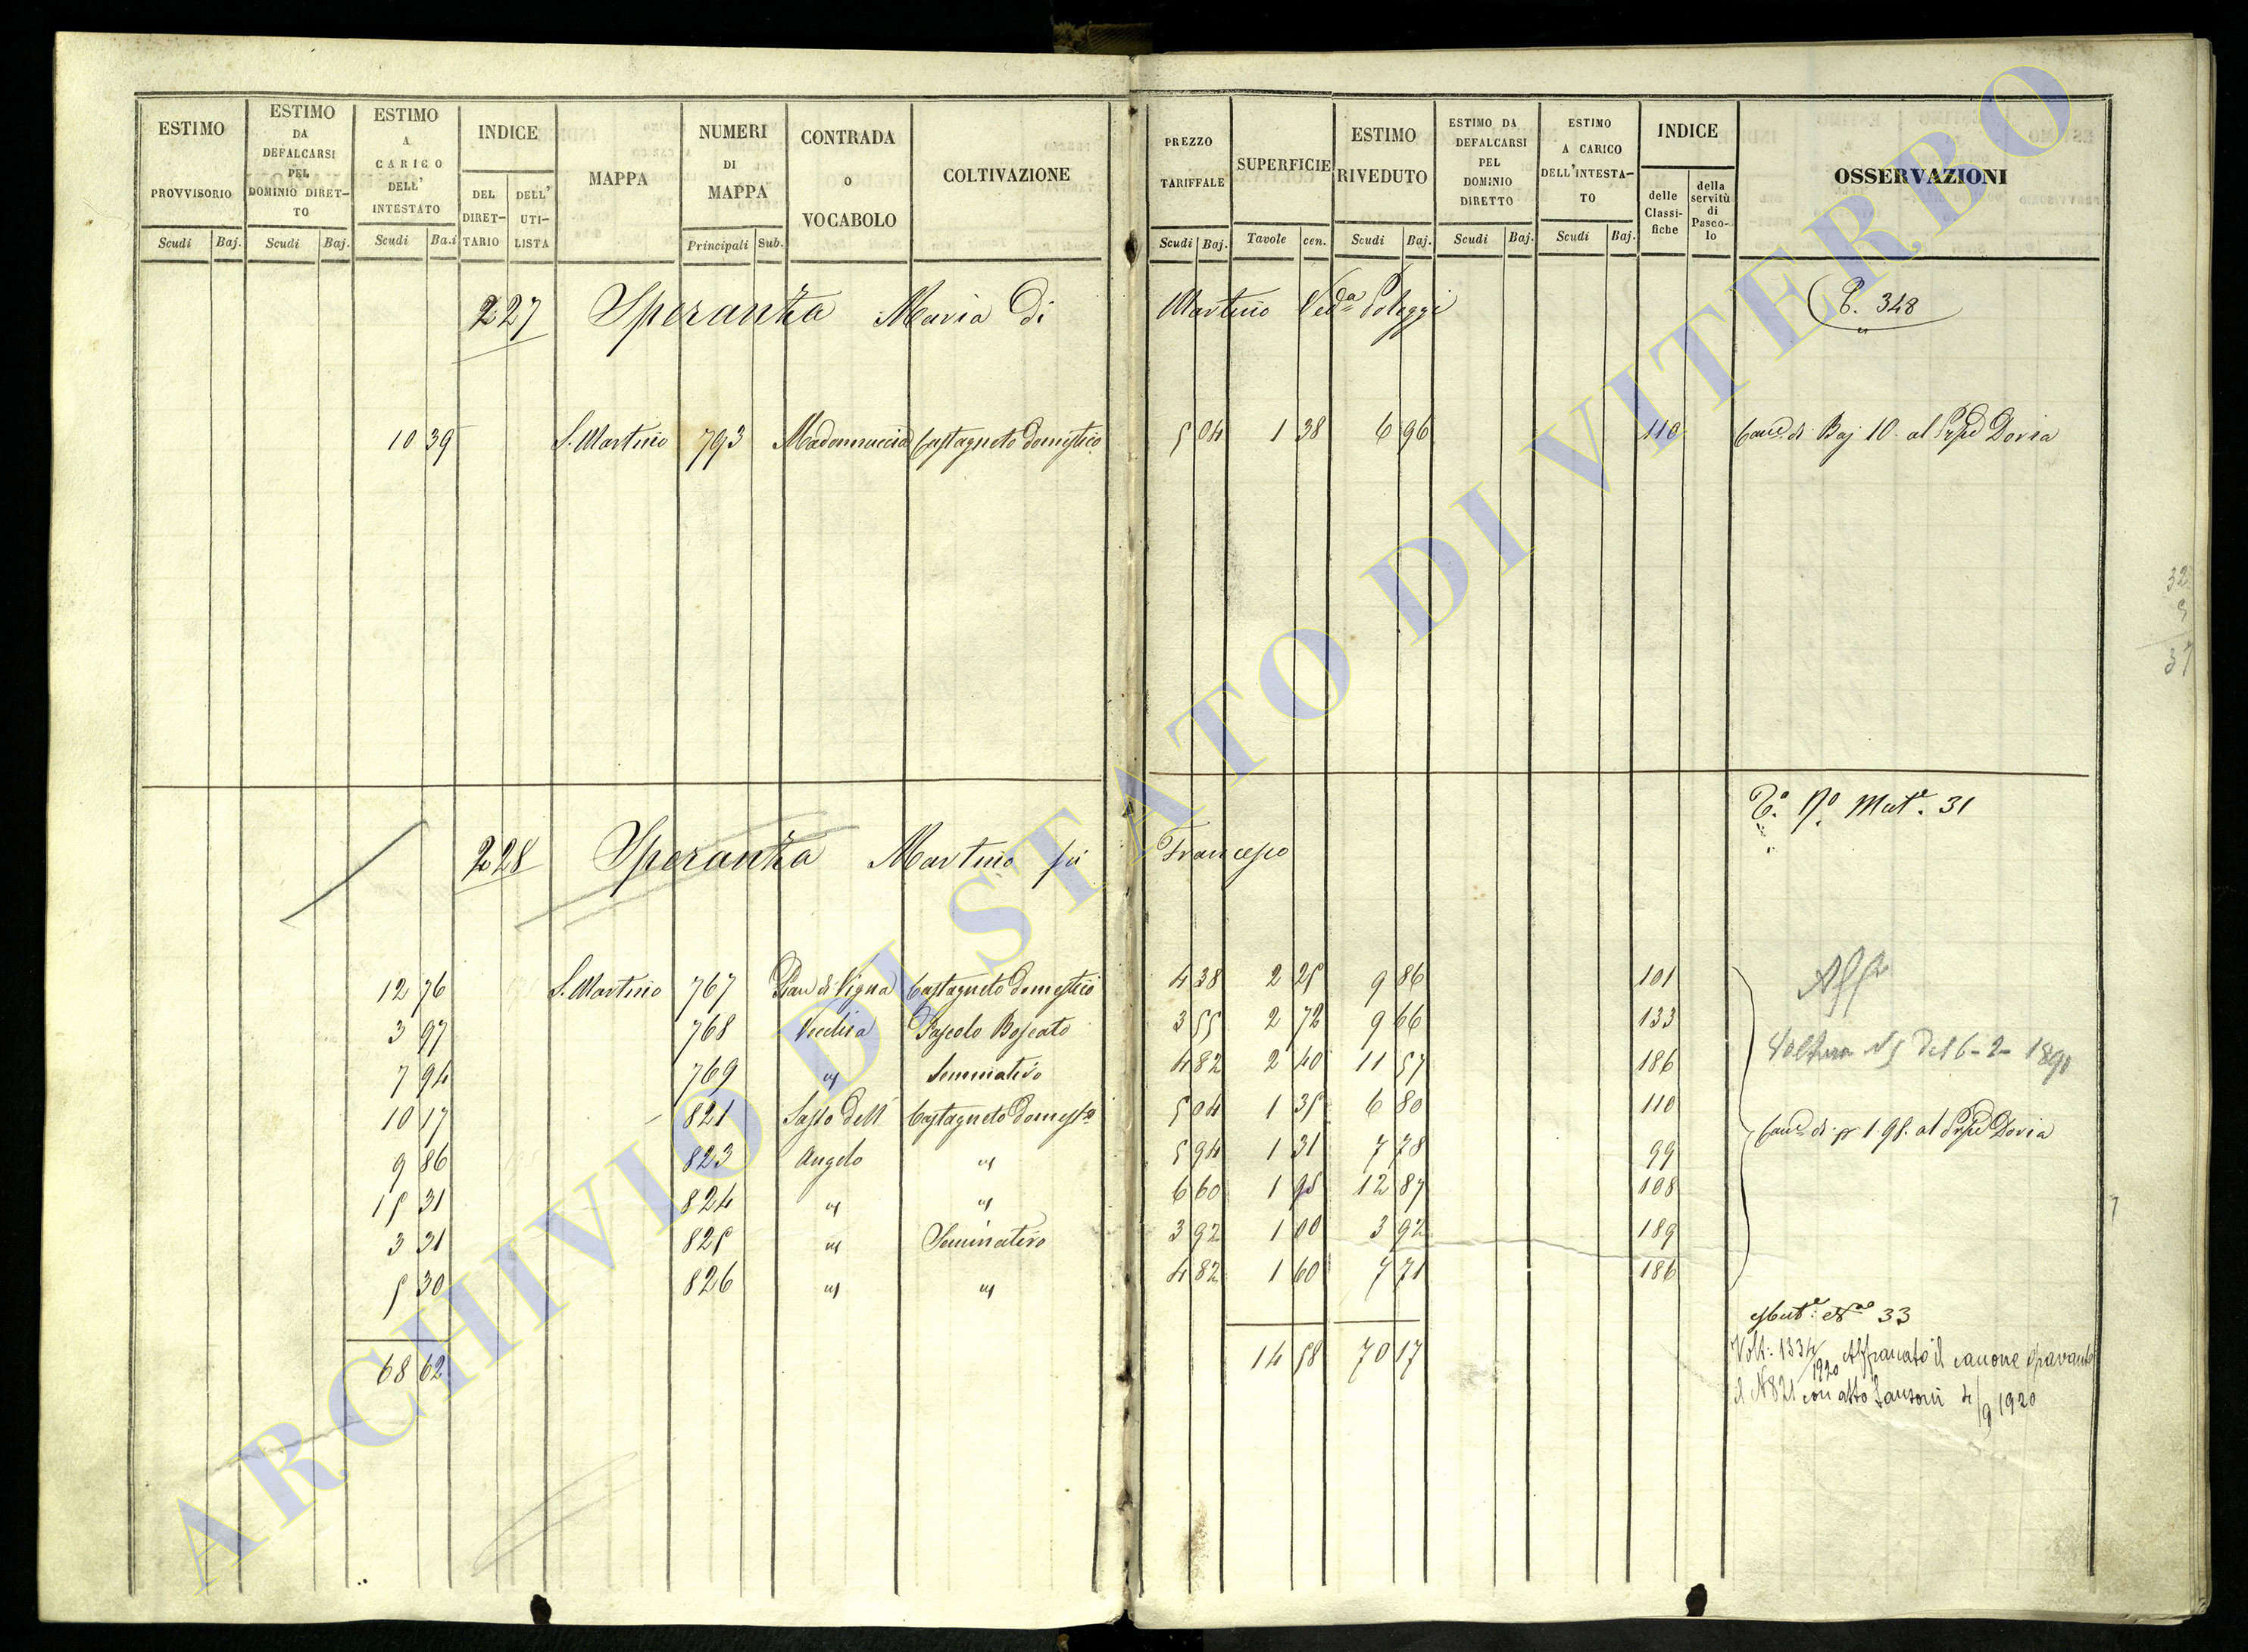 ESTIMO PROVVISORIO Scudi Baj.
ESTIMO DA DEFALCARSI PEL DOMINIO DIRETTO Scudi Baj.
ESTIMO A CARICO DELL' INTESTATO Scudi Ba.i
INDICE DEL DIRETTARIO DELL' UTILISTA
MAPPA
NUMERI DI MAPPA Principali Sub.
CONTRADA O VOCABOLO
COLTIVAZIONE
PREZZO TARIFFALE Scudi Baj.
SUPERFICIE Tavole cen.
ESTIMO RIVEDUTO Scudi Baj.
ESTIMO DA DEFALCARSI PEL DOMINIO DIRETTO Scudi Baj.
ESTIMO A CARICO DELL'INTESTATO Scudi Baj.
INDICE delle Classifiche della servitù di Pascolo
OSSERVAZIONI
227 Speranza Maria di Martino Ved.a Pologgi P. 348
10 39 S. Martino 793 Madonnuccia Castagneto domestico 5 04 1 38 6 96 110 Can.e di Baj 10 al Prpe Doria
T.o N.o Mut.e 31
228 Speranza Martino fu Francesco
12 76 S. Martino 767 Pian di Vigna Castagneto domestico 4 38 2 25 9 86 101
3 97 768 Vecchia Pascolo Boscato 3 55 2 72 9 66 133
7 94 769 " Seminativo 4 82 2 40 11 57 186
10 17 821 Sasso dell' Castagneto domest.o 5 04 1 35 6 80 110
9 86 823 Angelo " 5 94 1 31 7 78 99
15 31 824 " " 6 60 1 95 12 87 108
3 31 825 " Seminativo 3 92 1 00 3 92 189
5 30 826 " " 4 82 1 60 7 71 186
68 62 14 58 70 17
Aff.
Voltura N 5 del 6-2-1890
Can.e di 1.98. al Prpe Doria
Mut.e 33
Volt: 1334/1920 Affrancato il canone gravante
il N 821 con atto Sansoni 4/9 1920
32
5
37
ARCHIVIO DI STATO DI VITERBO